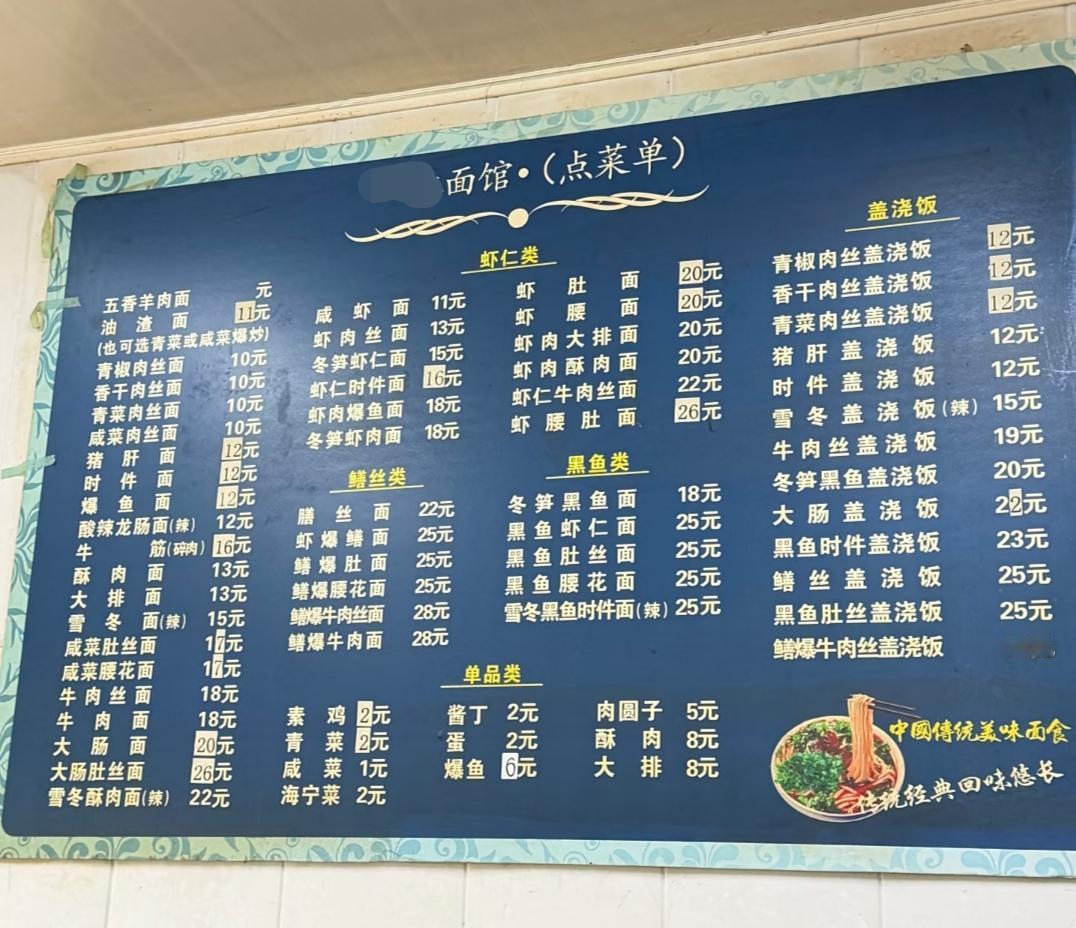 面馆•(点菜单)
五香羊肉面 元
油渣面 11元
(也可选青菜或咸菜爆炒)
青椒肉丝面 10元
香干肉丝面 10元
青菜肉丝面 10元
咸菜肉丝面 10元
猪肝面 12元
时件面 12元
爆鱼面 12元
酸辣龙肠面(辣) 12元
牛筋(碎肉) 16元
酥肉面 13元
大排面 13元
雪冬面(辣) 15元
咸菜肚丝面 17元
咸菜腰花面 17元
牛肉丝面 18元
牛肉面 18元
大肠面 20元
大肠肚丝面 26元
雪冬酥肉面(辣) 22元
虾仁类
咸虾面 11元
虾肉丝面 13元
冬笋虾仁面 15元
虾仁时件面 16元
虾肉爆鱼面 18元
冬笋虾肉面 18元
虾肚面 20元
虾腰面 20元
虾肉大排面 20元
虾肉酥肉面 20元
虾仁牛肉丝面 22元
虾腰肚面 26元
鳝丝类
膳丝面 22元
虾爆鳝面 25元
鳝爆肚面 25元
鳝爆腰花面 25元
鳝爆牛肉丝面 28元
鳝爆牛肉面 28元
黑鱼类
冬笋黑鱼面 18元
黑鱼虾仁面 25元
黑鱼肚丝面 25元
黑鱼腰花面 25元
雪冬黑鱼时件面(辣) 25元
单品类
素鸡 2元
青菜 2元
咸菜 1元
海宁菜 2元
酱丁 2元
蛋 2元
爆鱼 6元
肉圆子 5元
酥肉 8元
大排 8元
盖浇饭
青椒肉丝盖浇饭 12元
香干肉丝盖浇饭 12元
青菜肉丝盖浇饭 12元
猪肝盖浇饭 12元
时件盖浇饭 12元
雪冬盖浇饭(辣) 15元
牛肉丝盖浇饭 19元
冬笋黑鱼盖浇饭 20元
大肠盖浇饭 22元
黑鱼时件盖浇饭 23元
鳝丝盖浇饭 25元
黑鱼肚丝盖浇饭 25元
鳝爆牛肉丝盖浇饭
中國傳统美味面食
传统经典回味悠长